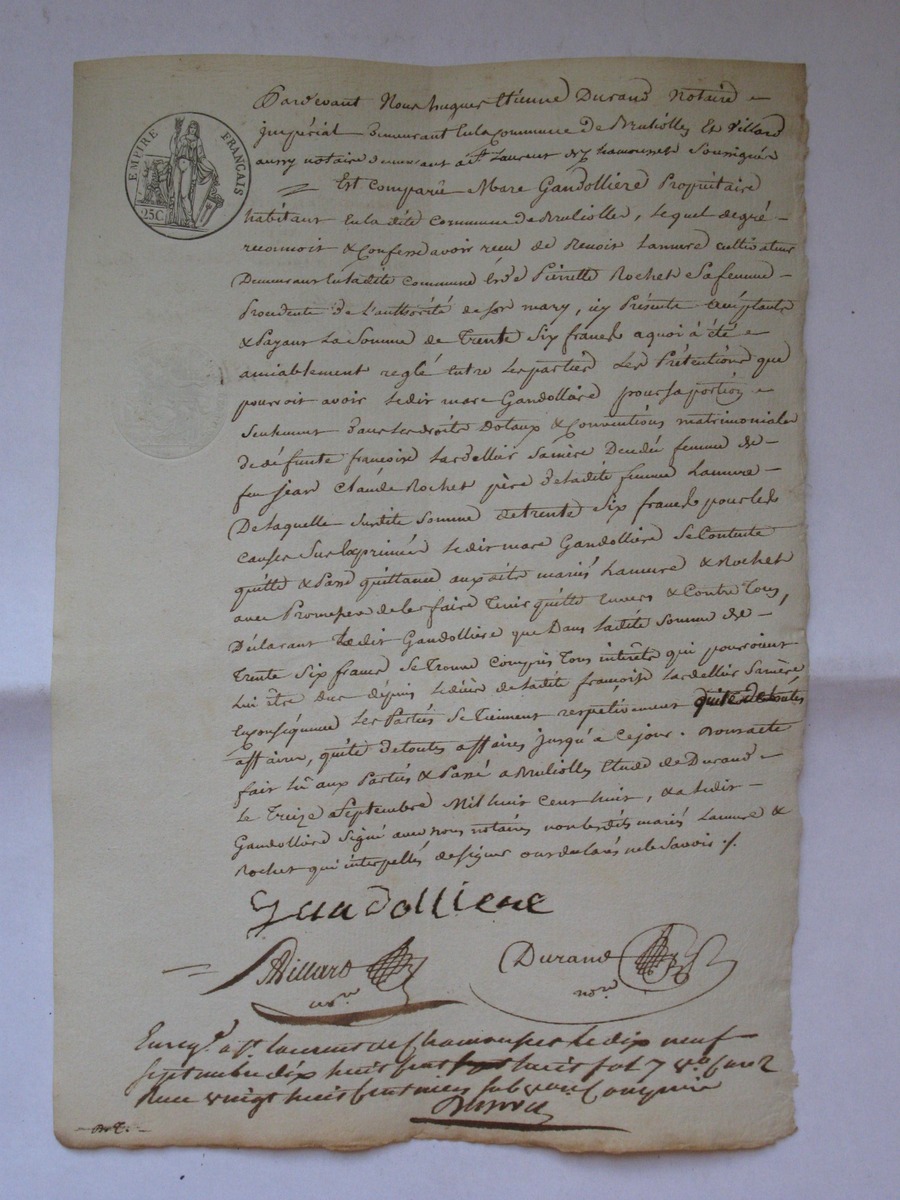 EMPIRE FRANÇAIS
25C
Pardevant Nous hugues Etienne Durand Notaire
jmpérial demeurant En la Commune de Bruliolles Et Villard
aussy notaire demeurant a St. Laurent de Chamousset Soussignés
Est Comparû Marc Gandolliere Propriétaire
habitant En la dite Commune de Brulliolles, lequel de gré
reconnoit & Confesse avoir reçu de Benoit Lamure cultivateur
Demeurant En la dite Commune & de Pierrette Rochet Sa femme
Procedente de l'authorité de son mary, icy Présents Acceptants
& Payans La Somme de Trente Six francs a quoi à été
amiablement reglé Entre les parties Les Prétentions que
pourroit avoir ledit marc Gandollière pour sa portion
Seulement dans les droits Dotaux & Conventions matrimoniales
de défunte françoise Lardellier Sa mère Deuxé femme de
feu jean Claude Rochet père de ladite femme Lamure
De laquelle Susdite Somme de trente Six francs pour les
causes Sus Exprimées ledit marc Gandollière Se Contente
quitte & Passe quittance auxdits mariés Lamure & Rochet
avec Promesse de les faire Tenir quitte Envers & Contre Tous,
Déclarant ledit Gandollière que Dans ladite Somme de
Trente Six francs Se Trouve Compris Tous intérêts qui pourroient
Lui être dus depuis le décès de ladite françoise Lardellier Sa mère
En conséquence Les Parties Se Tiennent respectivement quitte de toutes
affaires, quitte de toutes affaires jusqu'à ce jour. Dont acte
fait lû aux Parties & Passé a Brulliolles Etude de Durand
le Treize Septembre Mil huit Cent huit, & a ledit
Gandollière Signé avec nous notaires non lesdits mariés Lamure &
Rochet qui interpellés de signer ont déclarés ne le Savoir ./.
Gandolliere
Villard Durand
nore nore
Enregé. à St. laurent de Chamousset le dix neuf
Septembre dix huit cent huit fol 7 Vo Case 2
Reçu vingt huit Centimes Subvon Comprise